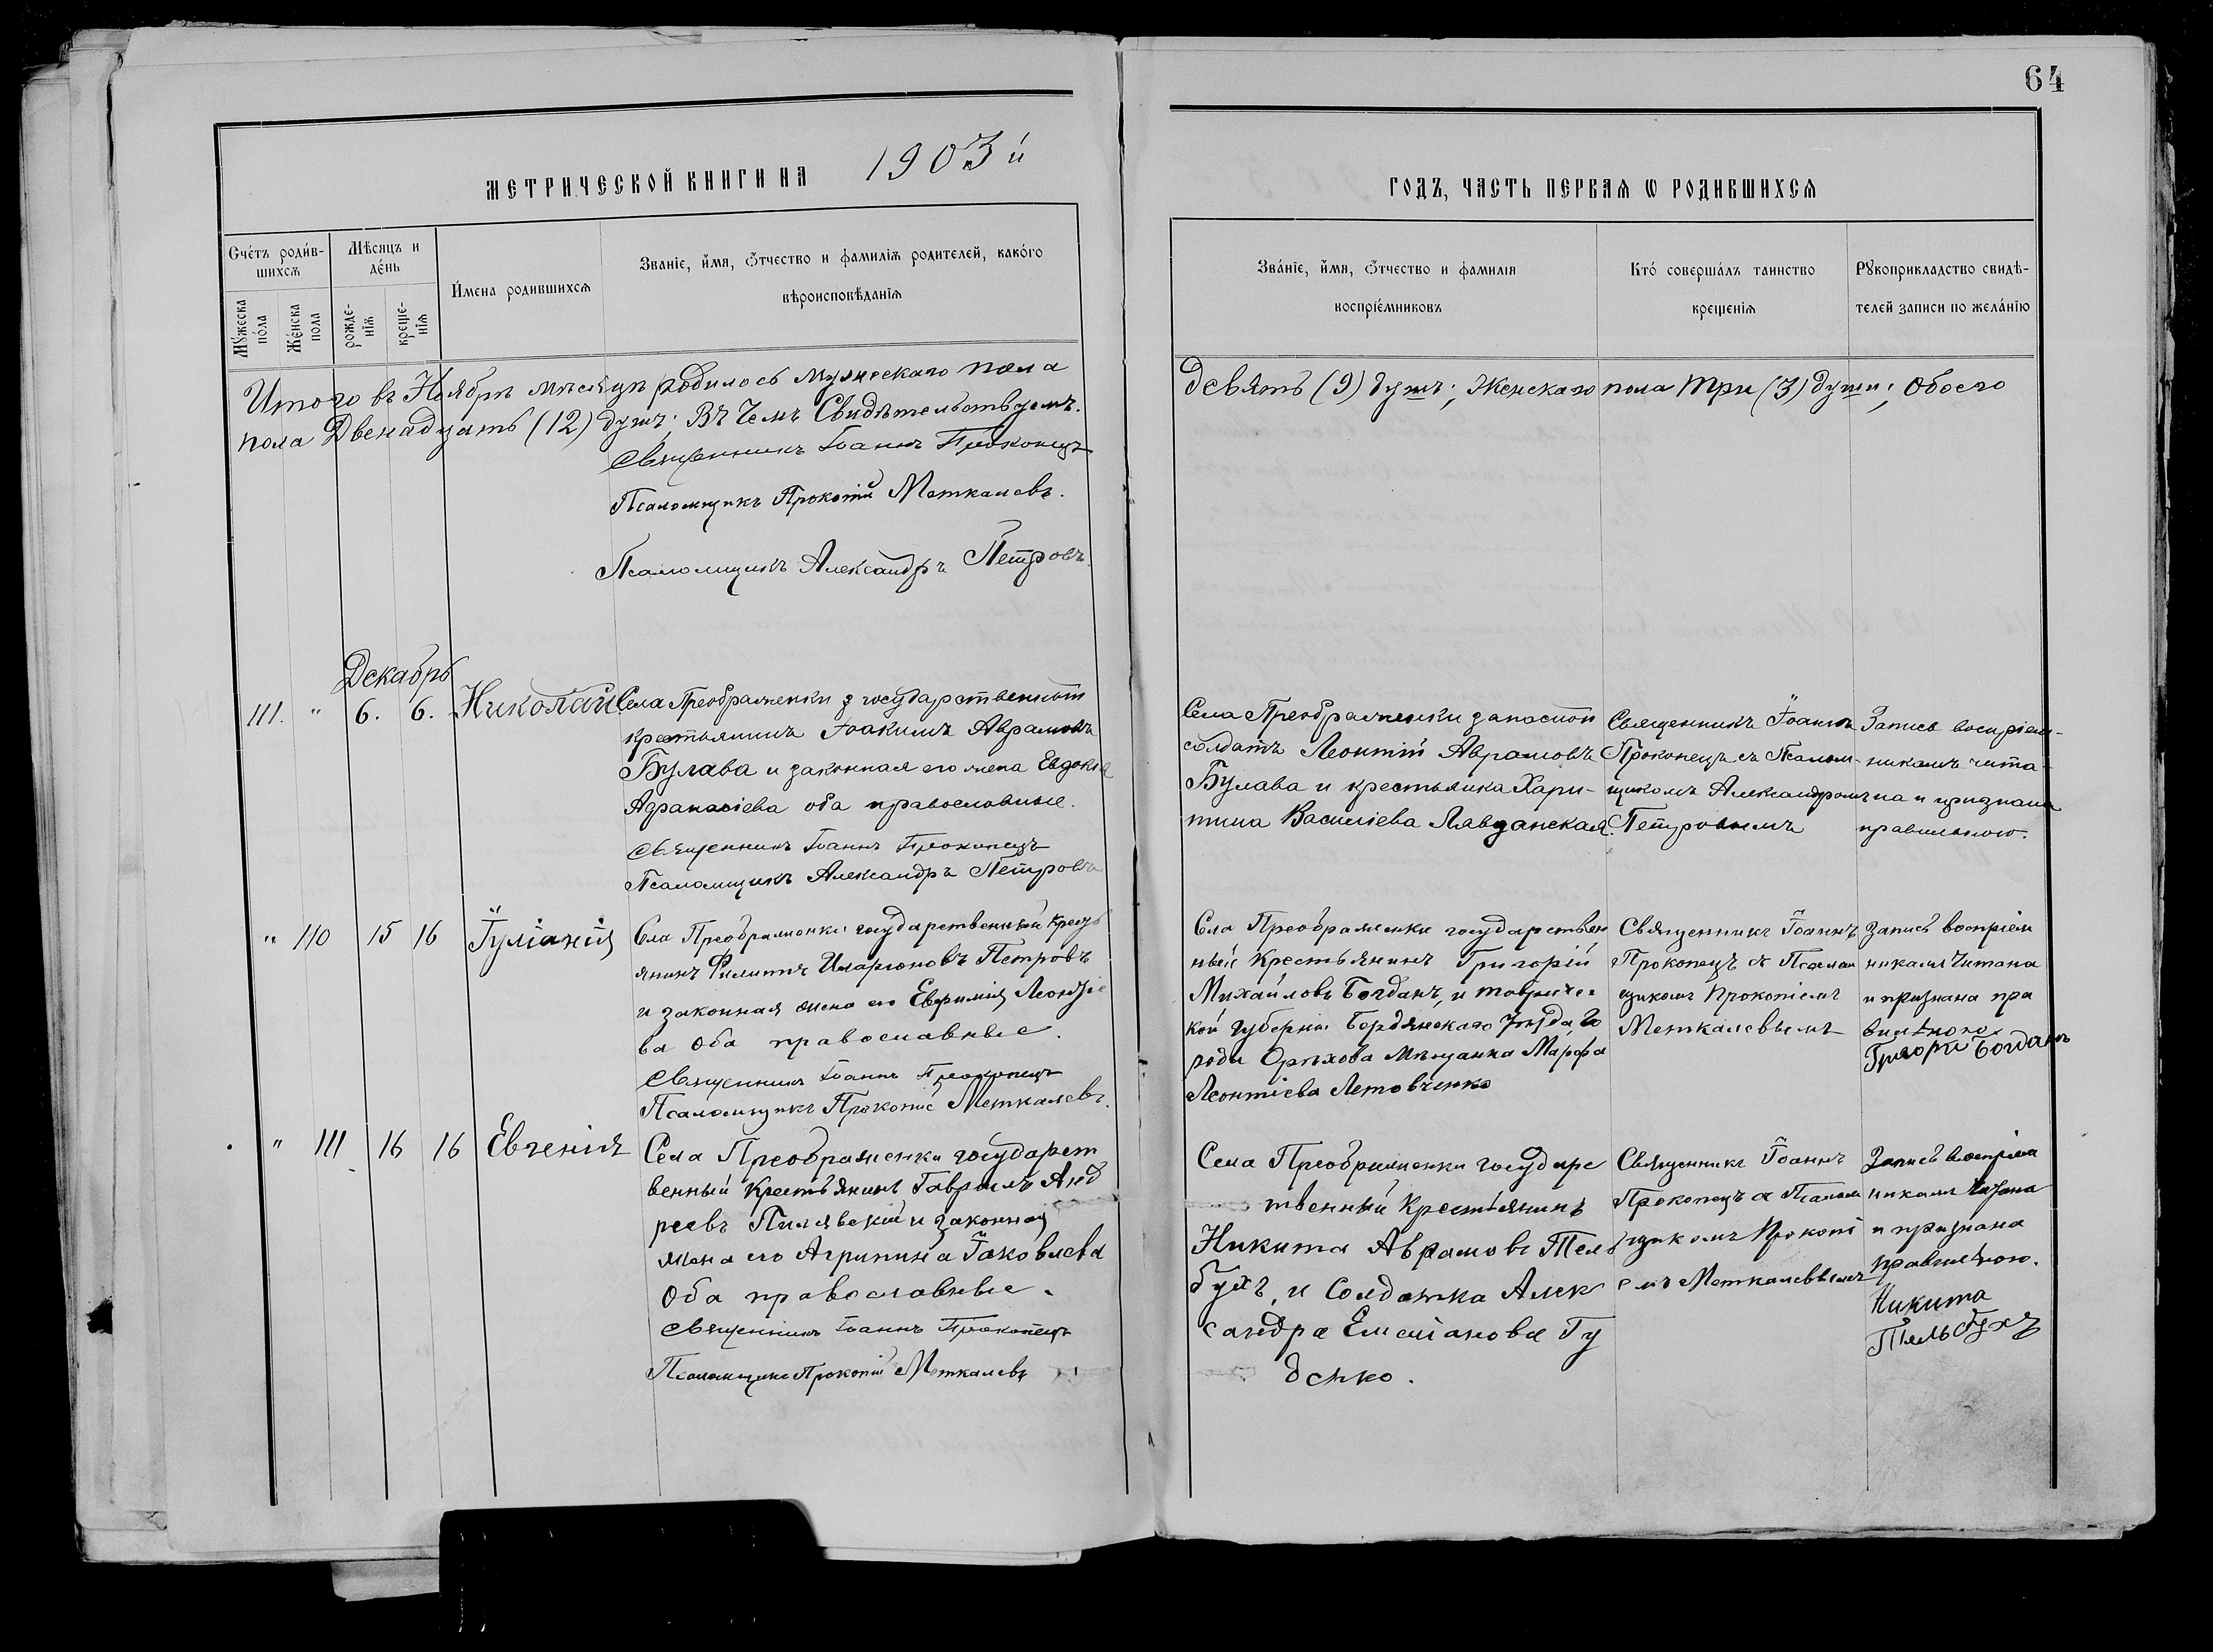 64
МЕТРИЧЕСКОЙ КНИГИ НА 1903 й
ГОДЪ, ЧАСТЬ ПЕРВАѦ Ѡ РОДИВШИХСѦ
Сче́тъ роди́в-
шихсѧ
Мꙋ́жеска по́ла
Же́нска пола
Мѣсяцъ и
де́нь
рожде-
нїѧ
креще-
нїѧ
И́мена родившихсѧ
Званіе, и҆́мя, ѻ҆́тчество и фамиліѧ родителей, како́го
вѣроисповѣ́даніѧ
Зва́ніе, и҆́мя, ѻ҆́тчество и фамилїя
воспріе́мниковъ
Кто́ соверша́лъ таинство
крещенїѧ
Рꙋкоприкладство свидѣ-
телей записи по жела́нїю
Итого въ Ноябрѣ мѣсяцѣ родилось мужескаго пола
девять (9) душъ; женскаго пола три (3) души; обоего
пола Двенадцать (12) душъ; Въ чемъ Свидѣтельствуемъ.
Священникъ Іоаннъ Прокопецъ
Псаломщикъ Прокопій Меткалевъ.
Псаломщикъ Александръ Петровъ.
Декабрь
111. " 6. 6. Николай
Села Преображенки государственный
крестьянинъ Іоакимъ Аврамовъ
Булава и законная его жена Евдокія
Афанасіева оба православные.
Священникъ Іоаннъ Прокопецъ
Псаломщикъ Александръ Петровъ
Села Преображенки запасной
солдатъ Леонтій Аврамовъ
Булава и крестьянка Хари-
тина Василіева Лявданская.
Священникъ Іоаннъ
Прокопецъ съ Псалом-
щикомъ Александромъ
Петровымъ
Запись воспріем-
никамъ чита-
на и признана
правильною.
" 110 15 16 Іуліанія
Села Преображенки государственный Кресть
янинъ Филиппъ Иларіоновъ Петровъ
и законная жена его Евфимія Леонтіе
ва оба православные.
Священникъ Іоаннъ Прокопецъ
Псаломщикъ Прокопій Меткалевъ.
Села Преображенки государствен
ный Крестьянинъ Григорій
Михайловъ Богданъ, и тавричес
кой губерніи Бердянскаго Уѣзда, Го
рода Орѣхова Мѣщанка Марфа
Леонтіева Летовченко
Священникъ Іоаннъ
Прокопецъ съ Псалом
щикомъ Прокопіемъ
Меткалевымъ
Запись воспріем
никамъ Читана
и признана пра
вильною.
Григори Богданъ
" 111 16 16 Евгенія
Села Преображенки государст
венный Крестьянинъ Гавріилъ Анд
реевъ Пилявскій и законная
жена его Агрипина Іаковлева
Оба православные.
Священникъ Іоаннъ Прокопецъ
Псаломщикъ Прокопій Меткалевъ
Села Преображенки государс
твенный Крестьянинъ
Никита Аврамовъ Тель
бухъ, и Солдатка Алек
сандра Емеліанова Гу
денко.
Священникъ Іоаннъ
Прокопецъ съ Псалом
щикомъ Прокопі
емъ Меткалевымъ
Запись воспріем
никамъ Читана
и признана
правильною.
Никита
Тельбухъ